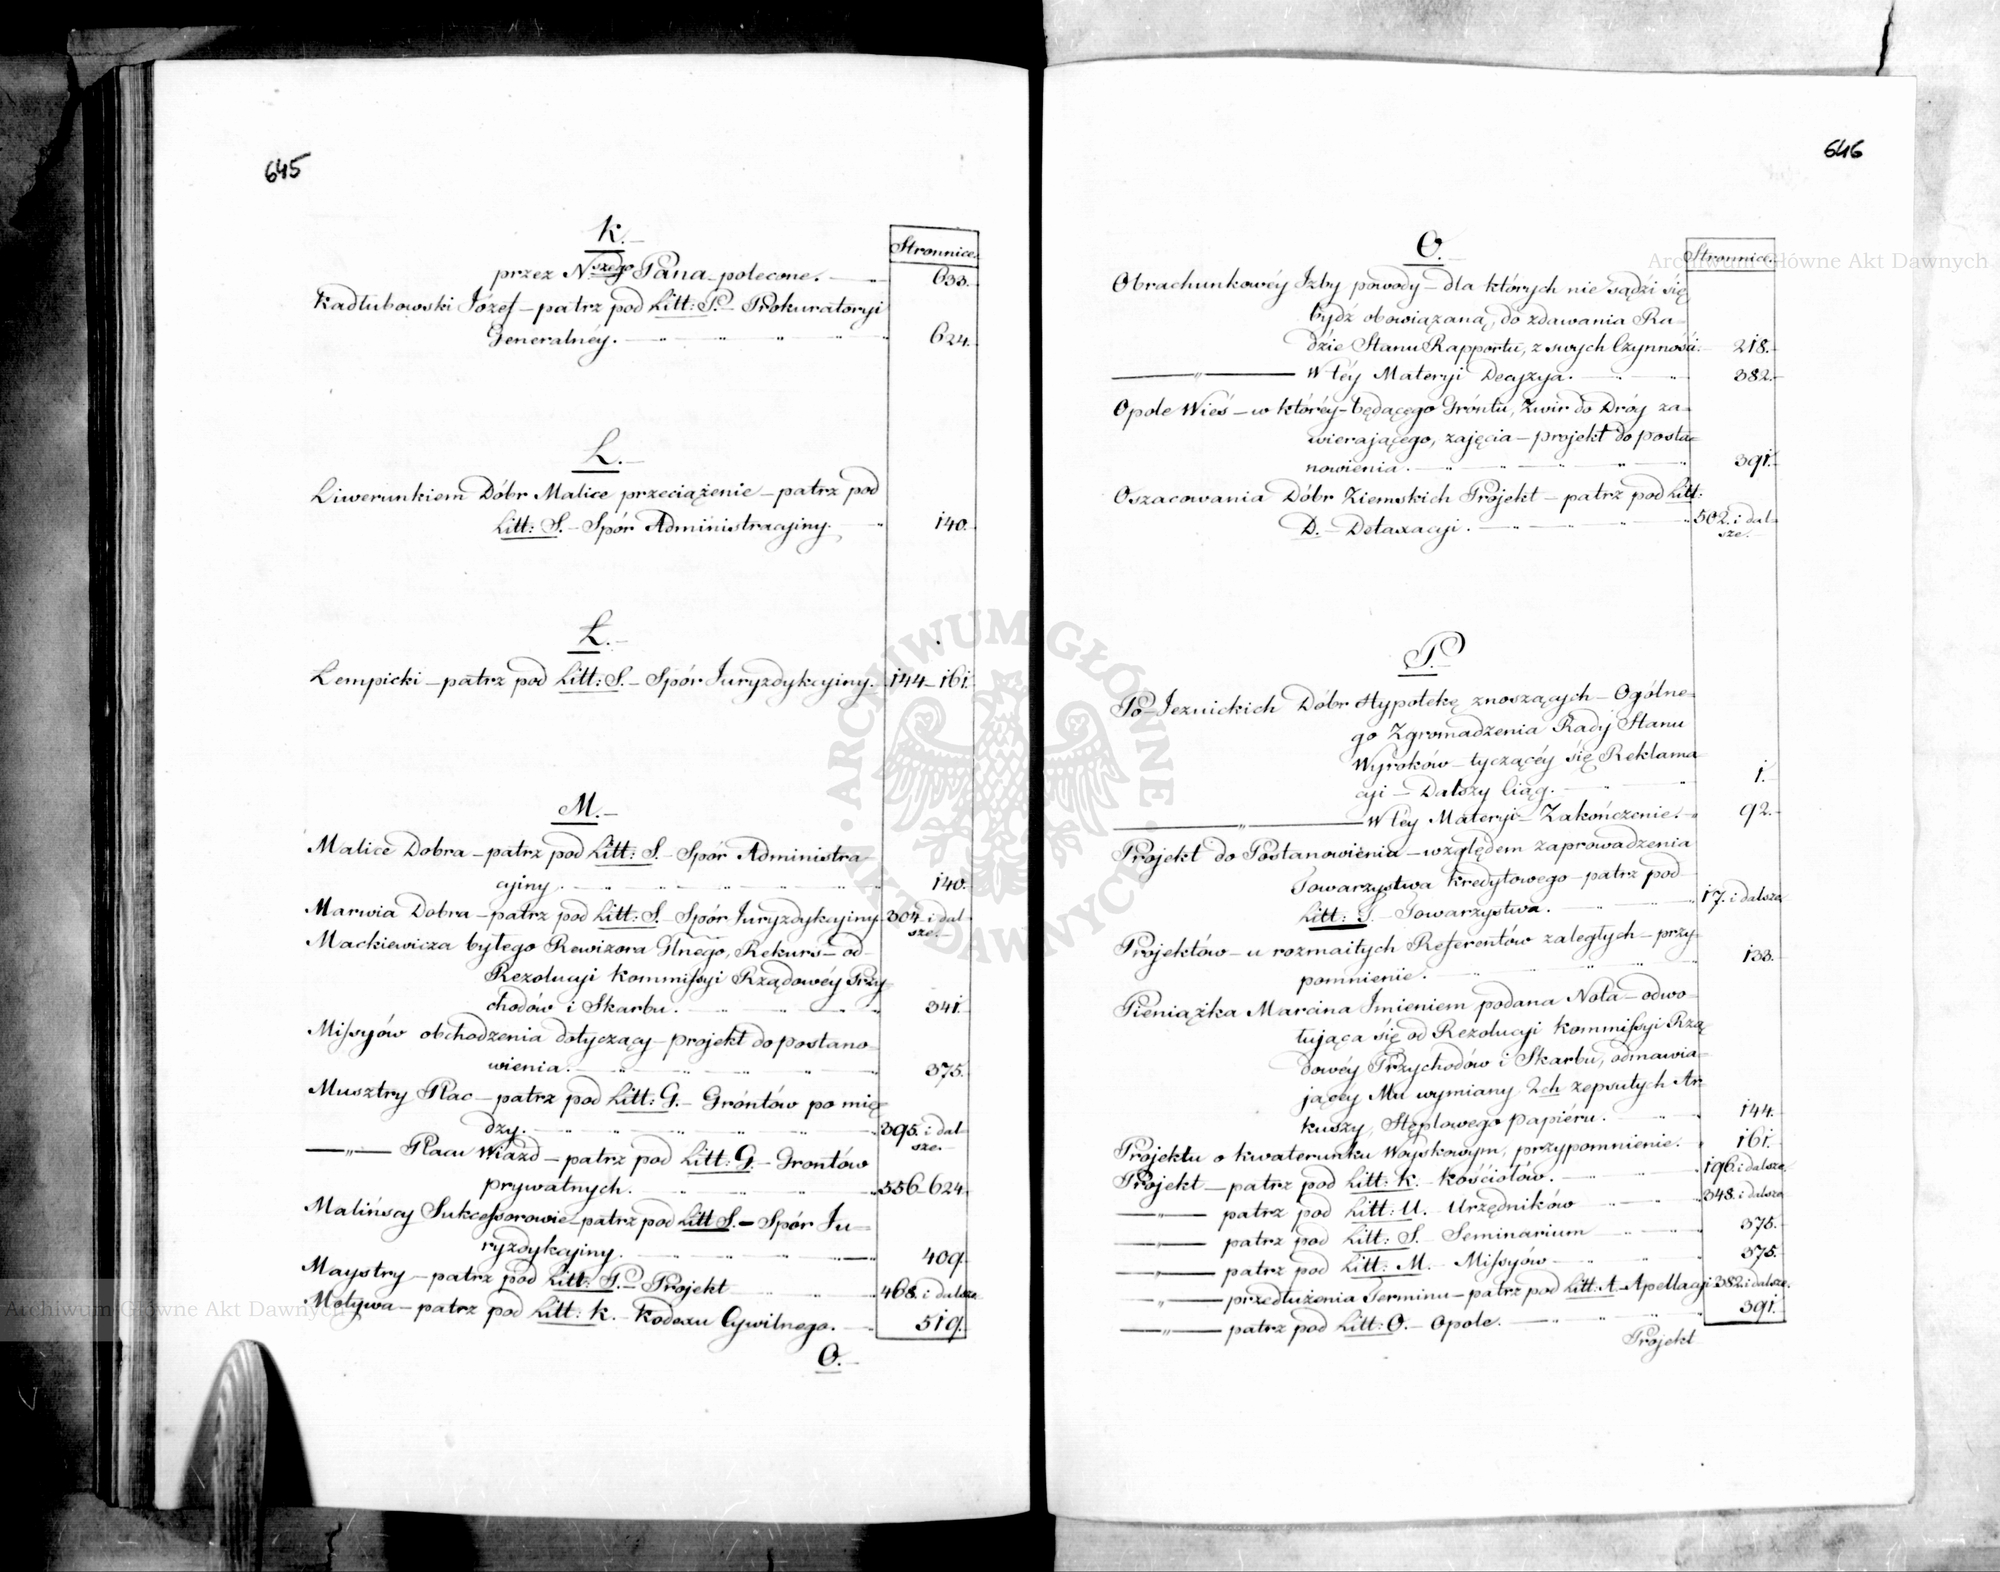 645
K.
Stronnice.
przez Nszego Pana polecone. 633.
Kadłubowski Józef – patrz pod Litt: P. – Prokuratoryi
Generalnéy. 624.
L.
Liwerunkiem Dóbr Malice przeciążenie – patrz pod
Litt: S. – Spór Administracyiny. 140.
Ł.
Łempicki – patrz pod Litt: S. – Spór Juryzdykcyiny. 144–161.
M.
Malice Dobra – patrz pod Litt: S. – Spór Administra-
cyiny. 140.
Marwia Dobra – patrz pod Litt: S. – Spór Juryzdykcyiny 304. i dal-
sze.
Mackiewicza byłego Rewizora Glnego, Rekurs – od
Rezolucyi Kommissyi Rządowéy Przy-
chodów i Skarbu. 341.
Missyów obchodzenia dotyczący – projekt do postano-
wienia. 375.
Musztry Plac – patrz pod Litt: G. – Gróntów po mię-
dzy. 395. i dal-
sze.
—„— Placu Wiazd – patrz pod Litt: G. – Grontów
prywatnych. 556–624.
Malińscy Sukcessorowie – patrz pod Litt S. – Spór Ju-
ryzdykcyiny. 409.
Maystry – patrz pod Litt: P. – Projekt 468. i dalsze
Motywa – patrz pod Litt: K. – Kodexu Cywilnego. 519.
O.
646
O.
Stronnice.
Obrachunkowéy Izby powody – dla których nie sądzi się
bydź obowiązaną, do zdawania Ra-
dzie Stanu Rapportu, z swych Czynności. 218.
—„— W téy Materyi Decyzya. 382.
Opole Wieś – w któréy będącego Gróntu, Żwir do Dróg za-
wierającego, zajęcia – projekt do posta-
nowienia. 391.
Oszacowania Dóbr Ziemskich Projekt – patrz pod Litt:
D. – Detaxacyi. 502. i dal-
sze.
P.
Po-Jezuickich Dóbr Hypotekę znoszących – Ogólne-
go Zgromadzenia Rady Stanu
Wyroków – tyczącéy się Reklama
cyi – Dalszy Ciąg. 1.
—„— W téy Materyi – Zakończenie. 92.
Projekt do Postanowienia – względem zaprowadzenia
Towarzystwa Kredytowego – patrz pod
Litt: T. – Towarzystwa. 17. i dalsze
Projektów – u rozmaitych Referentów zaległych – przy-
pomnienie. 133.
Pieniążka Marcina Imieniem podana Nota – odwo-
łująca się od Rezolucyi Kommissyi Rzą
dowéy Przychodów i Skarbu, odmawia-
jącéy Mu wymiany 2ch zepsutych Ar-
kuszy, Stęplowego papieru. 144.
Projektu o kwaterunku Woyskowym, przypomnienie. 161.
Projekt – patrz pod Litt: K. – Kościołów. 196. i dalsze.
—„— patrz pod Litt: U. – Urzędników 348. i dalsze
—„— patrz pod Litt: S. – Seminarium 375.
—„— patrz pod Litt: M. – Missyów 375.
—„— przedłużenia Terminu – patrz pod Litt: A. – Apellacyi 382. i dalsze.
—„— patrz pod Litt: O. – Opole. 391.
Projekt
Archiwum Główne Akt Dawnych
ARCHIWUM GŁÓWNE AKT DAWNYCH
Archiwum Główne Akt Dawnych